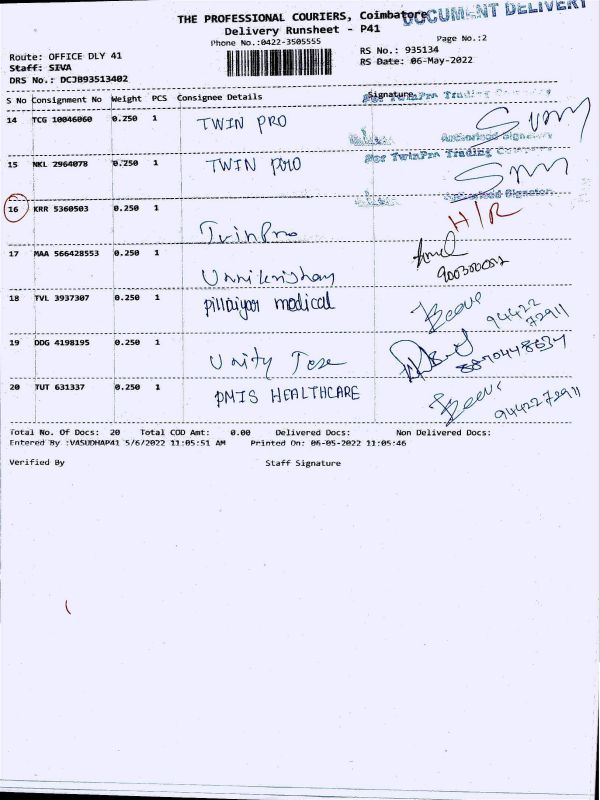 THE PROFESSIONAL COURIERS, Coimbatore
DOCUMENT DELIVERY
Delivery Runsheet - P41
Phone No.:0422-3505555
Page No.:2
Route: OFFICE DLY 41
RS No.: 935134
Staff: SIVA
RS Date: 06-May-2022
DRS No.: DCJB93513402
S No Consignment No Weight PCS Consignee Details Signature
For TwinPro Trading Company
14 TCG 10046060 0.250 1 TWIN PRO
Authorised Signatory
For TwinPro Trading Company
15 NKL 2964078 0.250 1 TWIN PRO
Authorised Signatory
16 KRR 5360503 0.250 1 TwinPro H/R
17 MAA 566428553 0.250 1
18 TVL 3937307 0.250 1 pillaiyar medical 94422 72911
19 DDG 4198195 0.250 1 Unity
20 TUT 631337 0.250 1 PMTS HEALTHCARE 9442272911
Total No. Of Docs: 20 Total COD Amt: 0.00 Delivered Docs: Non Delivered Docs:
Entered By :VASUDHAP41 5/6/2022 11:05:51 AM Printed On: 06-05-2022 11:05:46
Verified By Staff Signature